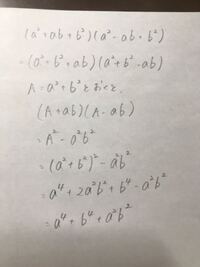 (a²+ab+b²)(a²-ab+b²)
=(a²+b²+ab)(a²+b²-ab)
A=a²+b²とおくと、
(A+ab)(A-ab)
=A²-a²b²
=(a²+b²)²-a²b²
=a⁴+2a²b²+b⁴-a²b²
=a⁴+b⁴+a²b²